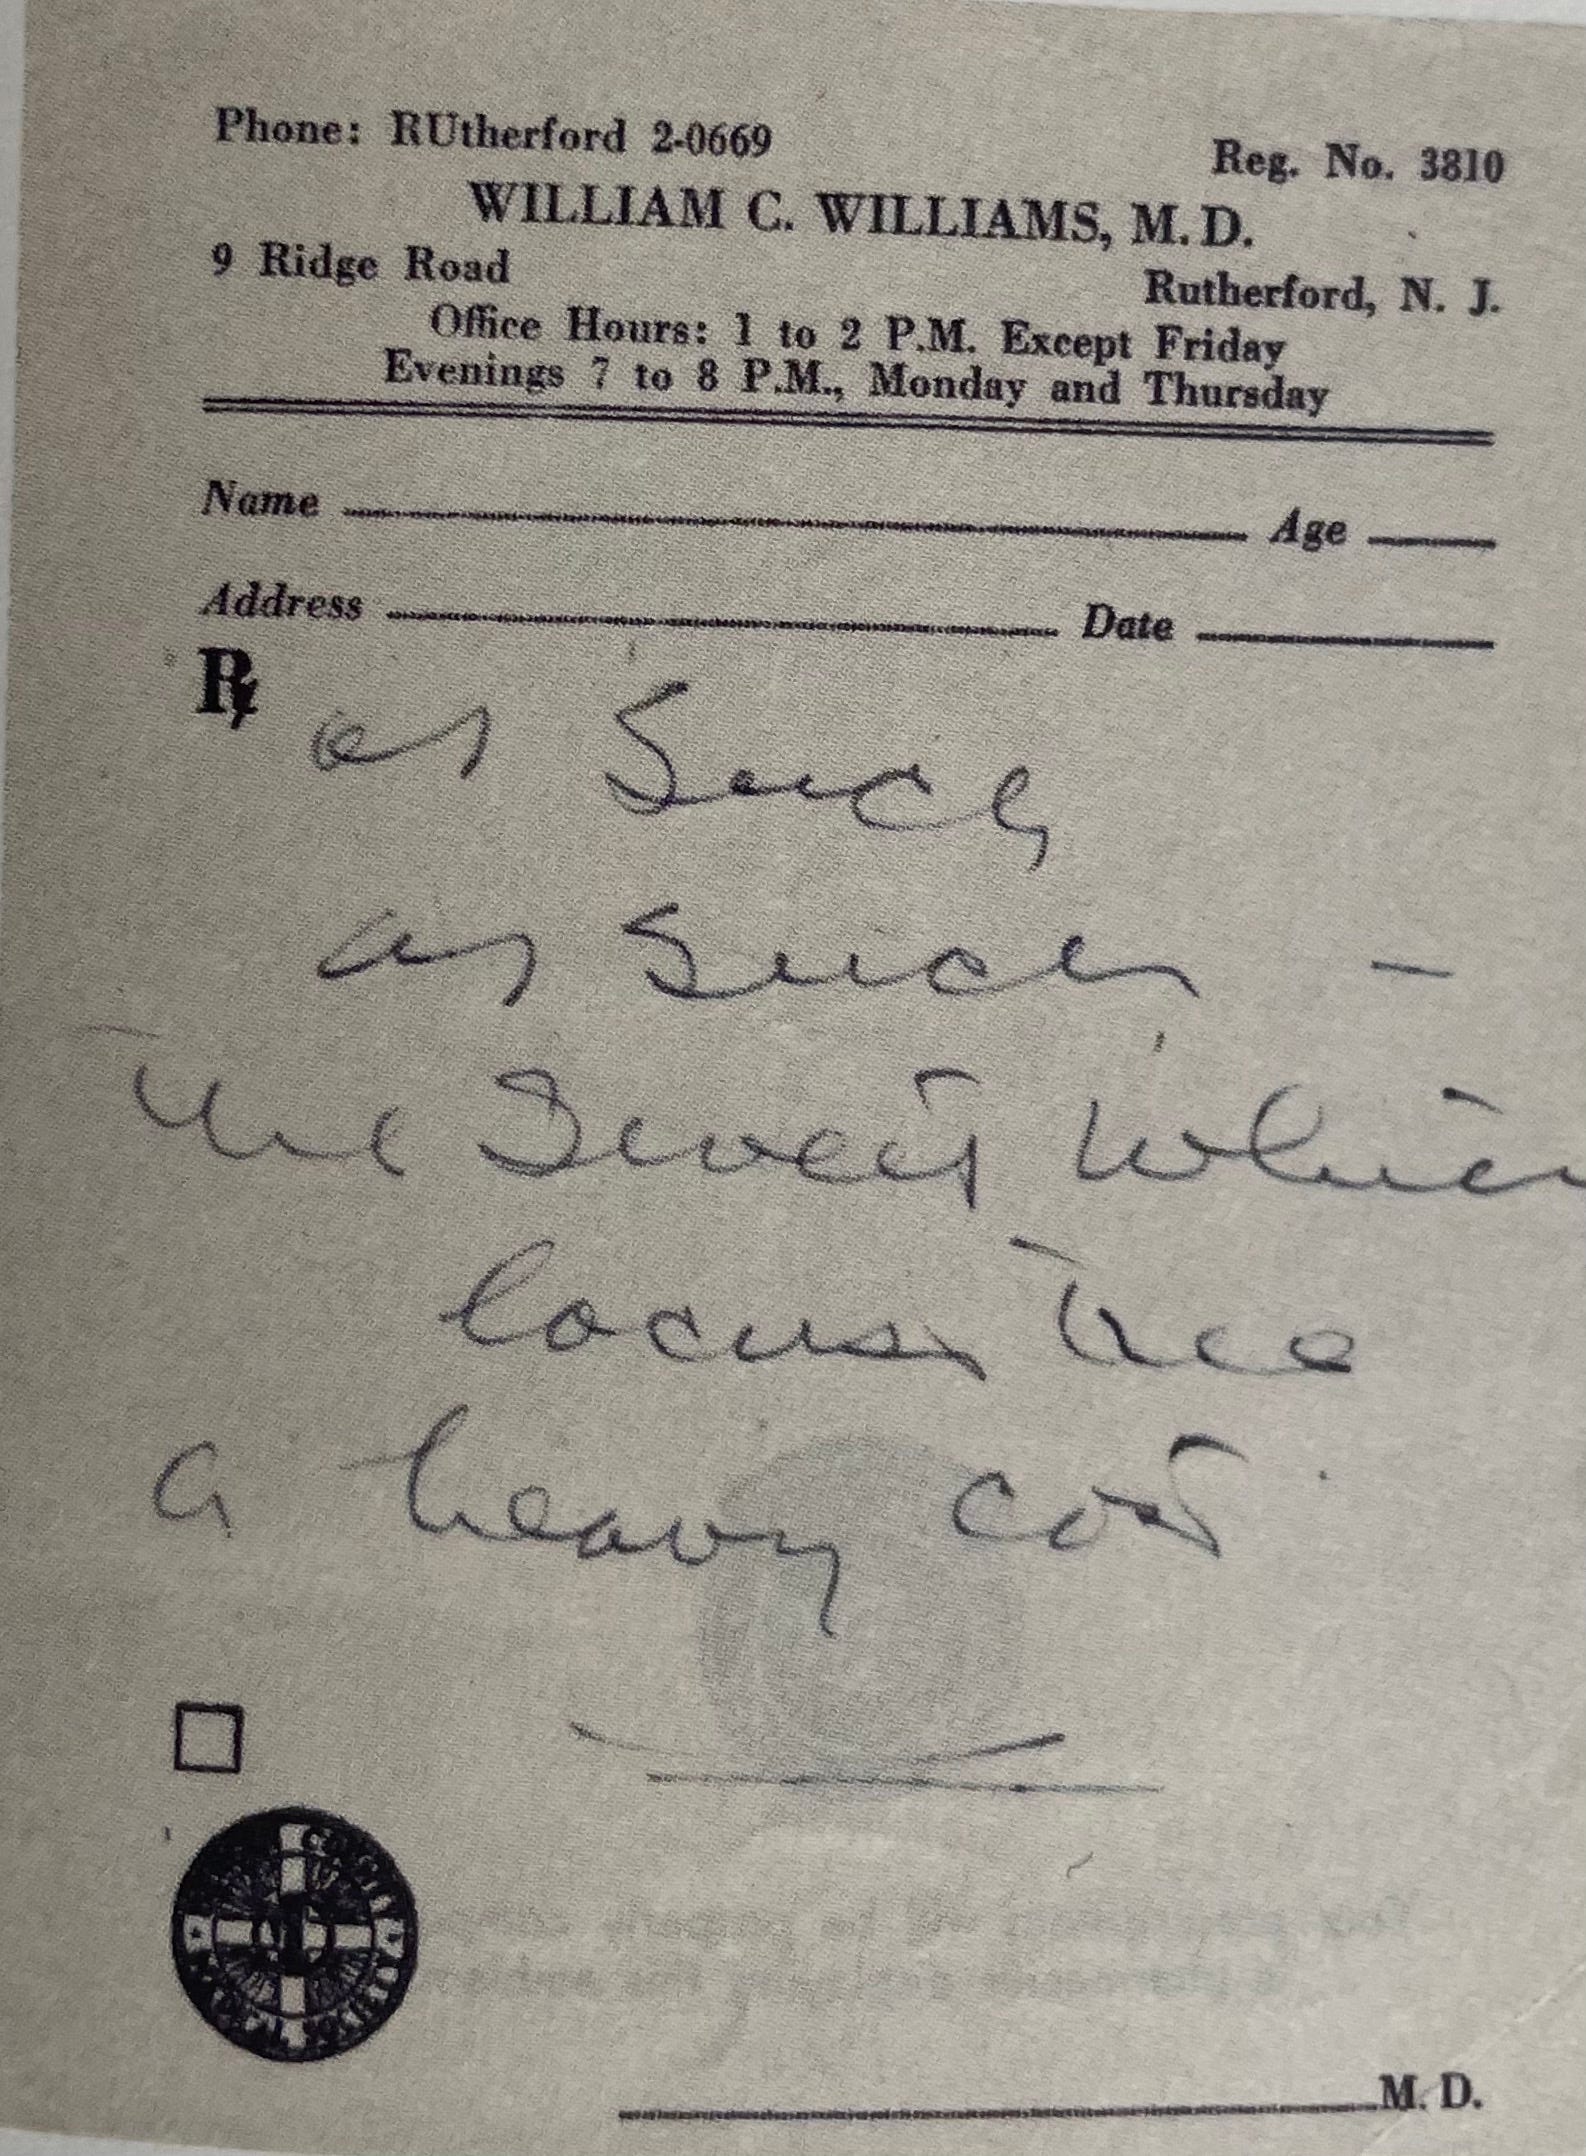 Phone: RUtherford 2-0669 Reg. No. 3810
WILLIAM C. WILLIAMS, M.D.
9 Ridge Road Rutherford, N. J.
Office Hours: 1 to 2 P.M. Except Friday
Evenings 7 to 8 P.M., Monday and Thursday
Name Age
Address Date
℞
as Such
as Such —
The Sweet White
locust tree
a heavy cost
M. D.